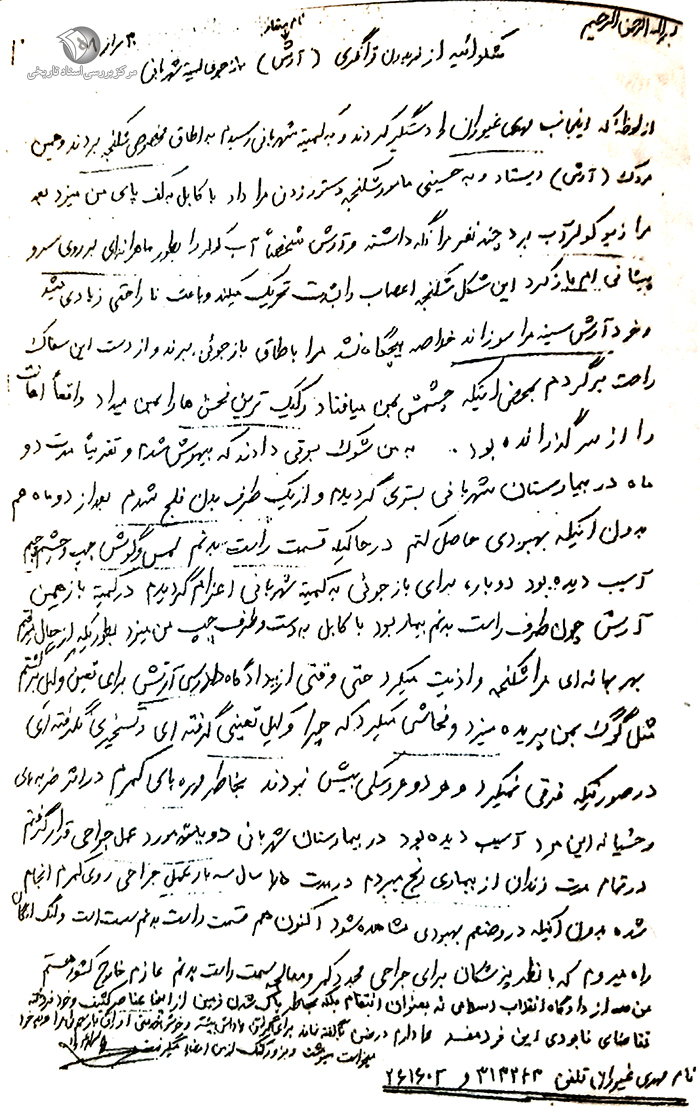 بسم الله الرحمن الرحیم
نام مستعار
شکوائیه از فریدون توانگری (آرش) بازجوی کمیته شهربانی
مرکز بررسی اسناد تاریخی
از لحظه‌ای که اینجانب مهدی غیوران را دستگیر کردند و به کمیته شهربانی رسیدم به اطاق مخصوص شکنجه بردند و همین
مردک (آرش) ایستاد و به حسینی مامور شکنجه دستور زدن مرا داد با کابل به کف پای من میزد بعد
مرا زیر کولر آب برد چند نفر مرا نگه داشته و آرش شخصاً آب کولر را بطور ماهرانه‌ای بر روی سر و
پیشانی ام باز کرد این شکل شکنجه اعصاب را بشدت تحریک میکند و باعث ناراحتی زیادی میشود
و خود آرش سینه مرا سوزاند خلاصه هیچگاه نشد مرا باطاق بازجوئی ببرند و از دست این سفاک
راحت برگردم بمحض اینکه چشمش بمن میافتاد رکیک ترین فحش ها را بمن میداد واقعاً اهانت
را از سر گذرانده بود. به من شوک برقی دادند که بیهوش شدم و تقریباً مدت دو
ماه در بیمارستان شهربانی بستری گردیدم و از یک طرف بدن فلج شدم بعد از دو ماه هم
بدون اینکه بهبودی حاصل کنم در حالیکه قسمت راست بدنم لمس و گوش چپ و چشم چپم
آسیب دیده بود دوباره برای بازجوئی به کمیته شهربانی اعزام گردیدم در کمیته باز همین
آرش چون طرف راست بدنم بیمار بود با کابل به دست و طرف چپ من میزد بطوریکه از حال میرفتم
بهر بهانه‌ای مرا شکنجه و اذیت میکرد حتی وقتی از بیدادگاه دادرسی آرتش برای تعین وکیل برگشتم
مثل گرگ بمن پریده میزد و فحاشی میکرد که چرا وکیل تعینی گرفته ای و تسخیری نگرفته ای
در صورتیکه فرقی نمیکرد و هر دو عروسکی بیش نبودند بخاطر مهره های کمرم در اثر ضربه های
وحشیانه این مرد آسیب دیده بود در بیمارستان شهربانی دوبار مورد عمل جراحی قرار گرفتم
در تمام مدت زندان از بیماری رنج میبردم در مدت سال سه بار عمل جراحی روی کمرم انجام
شده بدون اینکه در وضعم بهبودی مشاهده شود اکنون هم قسمت راست بدنم سست است و لنگ لنگان
راه میروم که با نظر پزشکان برای جراحی مجدد کمر و معالجه سمت راست بدنم عازم خارج کشور هستم
من از دادگاه انقلاب اسلامی نه بعنوان انتقام بلکه بخاطر پاک شدن زمین از این عناصر کثیف و خود فروخته
تقاضای نابودی این فرد مفسد را دارم در ضمن ناگفته نماند برای گرفتن پاداش بیشتر و
نام مهدی غیوران تلفن ۳۱۳۲۶۳ و ۲۶۱۶۰۲